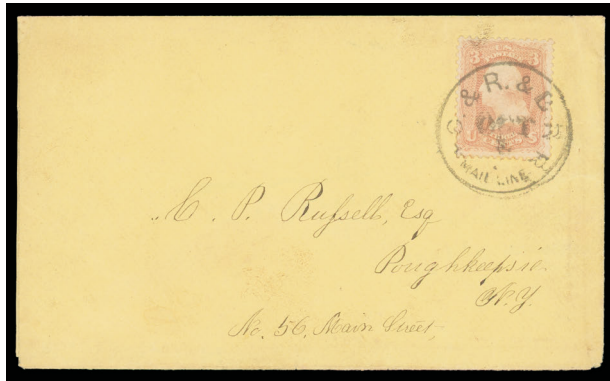 & R. & 
MAIL LINE
OCT
3 3
C. P. Rufsell, Esq
Poughkeepsie.
N.Y.
No. 56, Main Street,